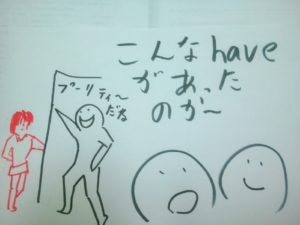 こんなhave
があった
のか〜
プーリティ〜
だね